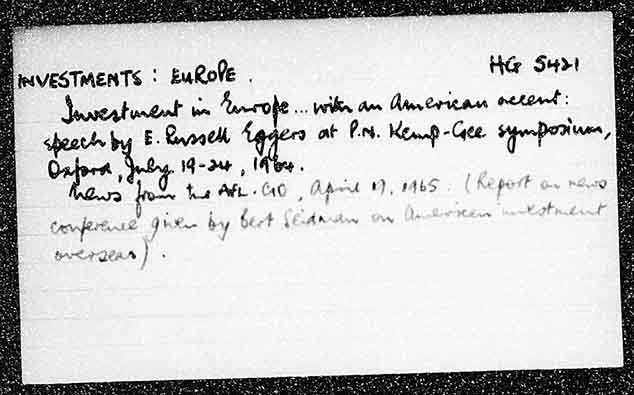 HG 5421
INVESTMENTS : EUROPE .
Investment in Europe ... with an American accent :
speech by E. Russell Eggers at P.N. Kemp-Gee symposium,
Oxford, July 19-24, 1964.
News from the AFL-CIO, April 19, 1965. (Report on news
conference given by Bert Seidman on American investment
overseas).